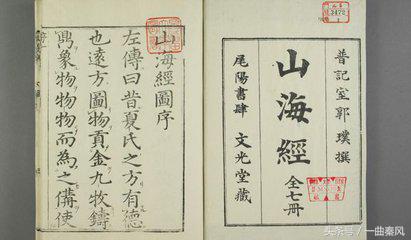 晉記室郭璞撰
山海經
全七冊
尾陽書肆 文光堂藏
山海經圖序
左傳曰昔夏氏之方有德
也遠方圖物貢金九牧鑄
鼎象物物物而為之備使
头条号/一曲秦风